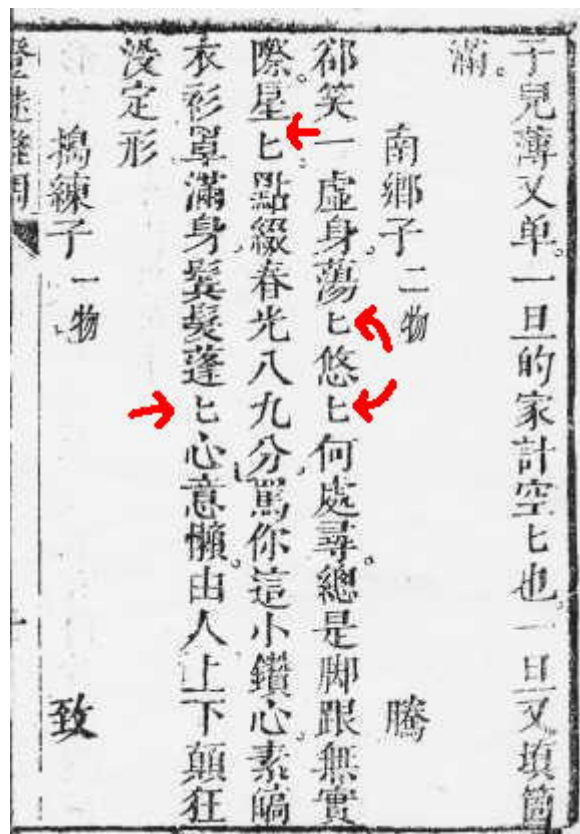 子兒薄又单。一旦的家計空匕也。一旦又填箇
滿。
南鄉子 二物 騰
郤笑一虛身。蕩匕悠匕何處尋。總是脚跟無實
際。星匕點綴春光八九分。罵你這小鑽心。素縞
衣衫罩滿身。鬓髮蓬匕心意懶。由人上下顛狂
没定形
搗練子 一物 致